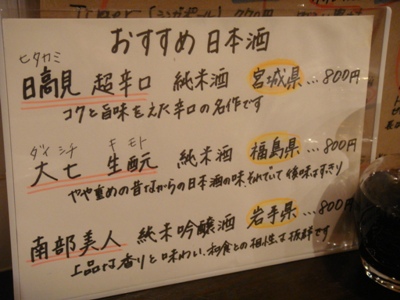 Tiger (シンガポール) 770円
おすすめ日本酒
ヒタカミ
日高見 超辛口 純米酒 宮城県…800円
コクと旨味をえた辛口の名作です
ダイシチ キモト
大七 生酛 純米酒 福島県…800円
やや重めの昔ながらの日本酒の味、それでいて後味はすっきり
南部美人 純米吟醸酒 岩手県…800円
上品な香りと味わい、和食との相性は抜群です